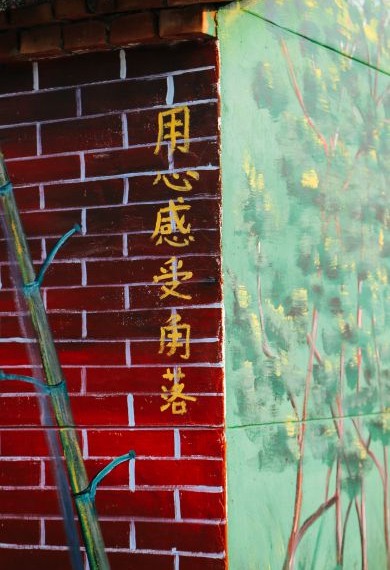 用心感受角落